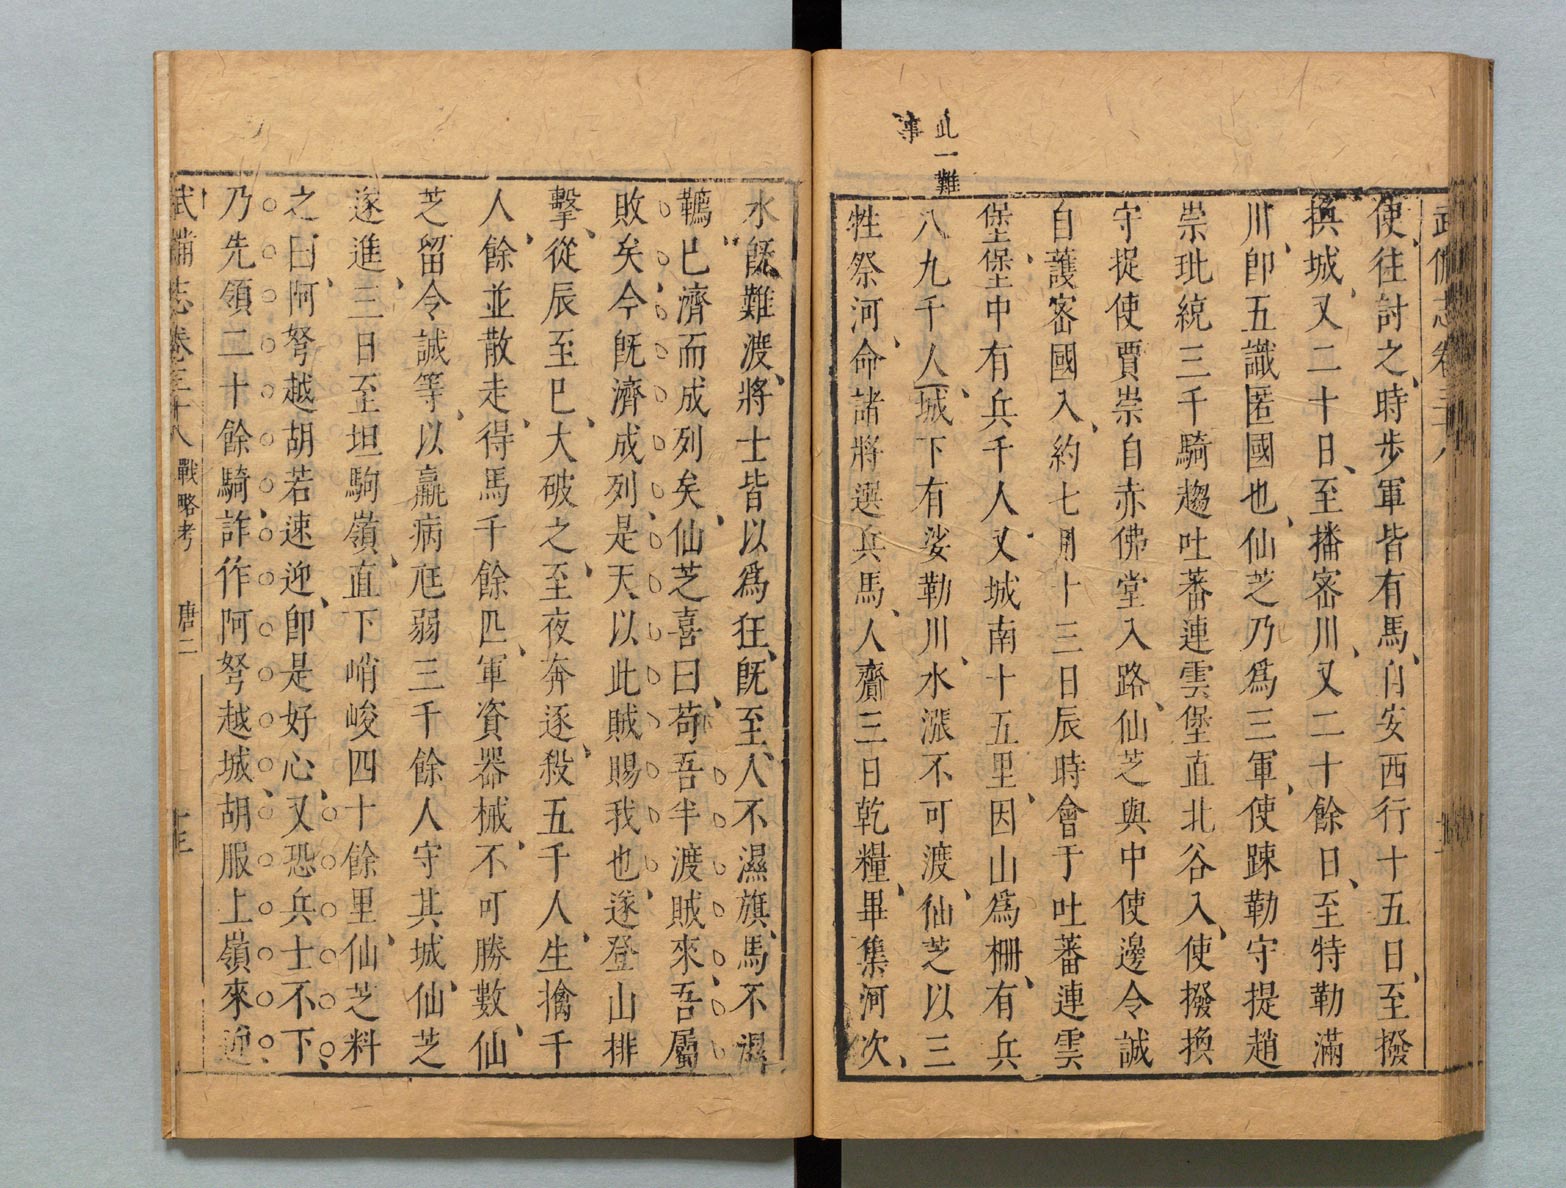 此一難
事
武備志卷三十八
使往討之時步軍皆有馬自安西行十五日至撥
換城又二十日至播密川又二十餘日至特勒滿
川即五識匿國也仙芝乃爲三軍使踈勒守捉趙
崇玭統三千騎趨吐蕃連雲堡直北谷入使撥換
守捉使賈崇自赤佛堂入路仙芝與中使邊令誠
自護密國入約七月十三日辰時會于吐蕃連雲
堡堡中有兵千人又城南十五里因山爲柵有兵
八九千人城下有娑勒川水漲不可渡仙芝以三
牲祭河命諸將選兵馬人齎三日乾糧畢集河次
水既難渡將士皆以爲狂既至人不濕旗馬不濕
韉已濟而成列矣仙芝喜曰苟吾半渡賊來吾屬
敗矣今既濟成列是天以此賊賜我也遂登山排
擊從辰至巳大破之至夜奔逐殺五千人生擒千
人餘並散走得馬千餘匹軍資器械不可勝數仙
芝留令誠等以羸病尫弱三千餘人守其城仙芝
遂進三日至坦駒嶺直下峭峻四十餘里仙芝料
之曰阿弩越胡若速迎即是好心又恐兵士不下
乃先領二十餘騎詐作阿弩越城胡服上嶺來迎
武備志卷三十八 戰略考 唐二